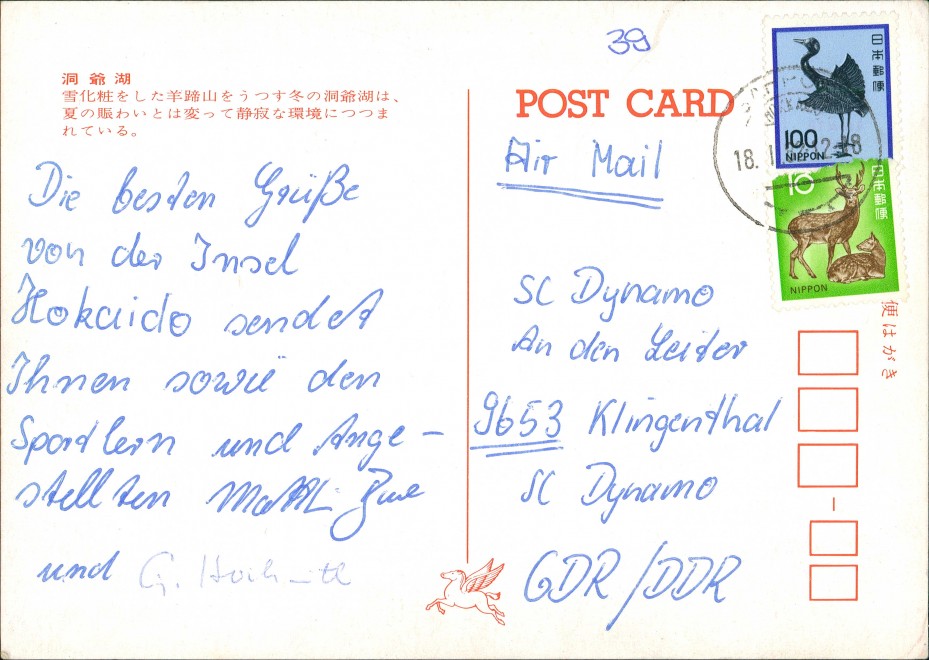 洞爺湖
雪化粧をした羊蹄山をうつす冬の洞爺湖は、
夏の賑わいとは変って静寂な環境につつま
れている。
Die besten Grüße
von der Insel
Hokaido sendet
Ihnen sowie den
Sportlern und Ange-
stellten
und G.
39
POST CARD
Air Mail
SC Dynamo
An den Leiter
9653 Klingenthal
SC Dynamo
GDR/DDR
日本郵便
100
NIPPON
18. I
12-18
日本郵便
10
NIPPON
便はがき